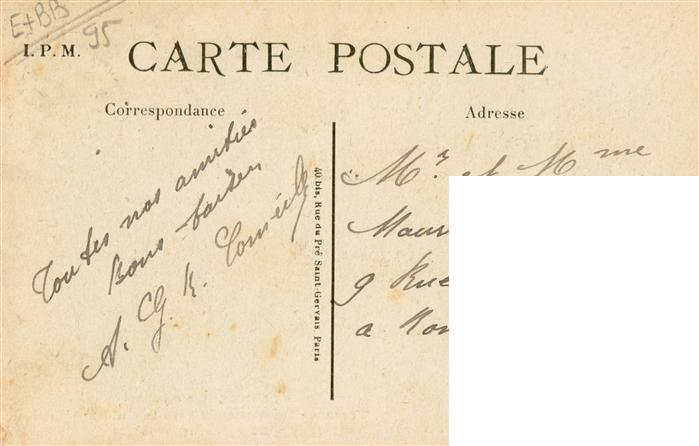 E+BB
95
I. P. M.
CARTE POSTALE
Correspondance
Toutes nos amitiés
Bons baisers
A. G. K.
40 bis, Rue du Pré Saint-Gervais Paris
Adresse
Mr et Mme
9 Rue
a